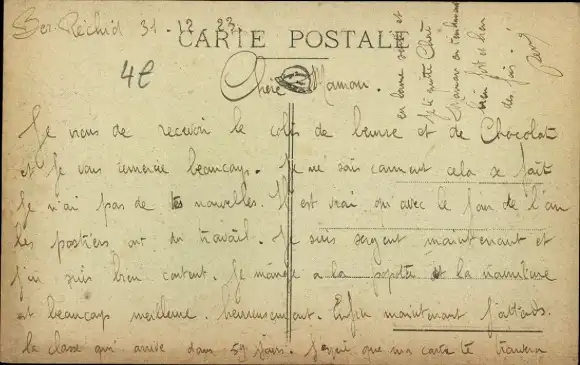 Ber Réchid 31-12-23
CARTE POSTALE
4€
Chère Maman.
Je viens de recevoir le colis de beurre et de Chocolat
et Je vous remercie beaucoup. Je ne sais comment cela se fait
Je n'ai pas de tes nouvelles. Il est vrai qu'avec le Jour de l'an
les postiers ont du travail. Je suis sergent maintenant et
J'en suis bien content. Je mange a la popotte et la nourriture
est beaucoup meilleure. heureusement. Enfin maintenant J'attends
la classe qui arrive dans 59 Jours. J'espère que ma carte te trouvera
en bonne santé et
Je te quitte Chère
Maman en t'embrassant
bien fort et bien
des fois.